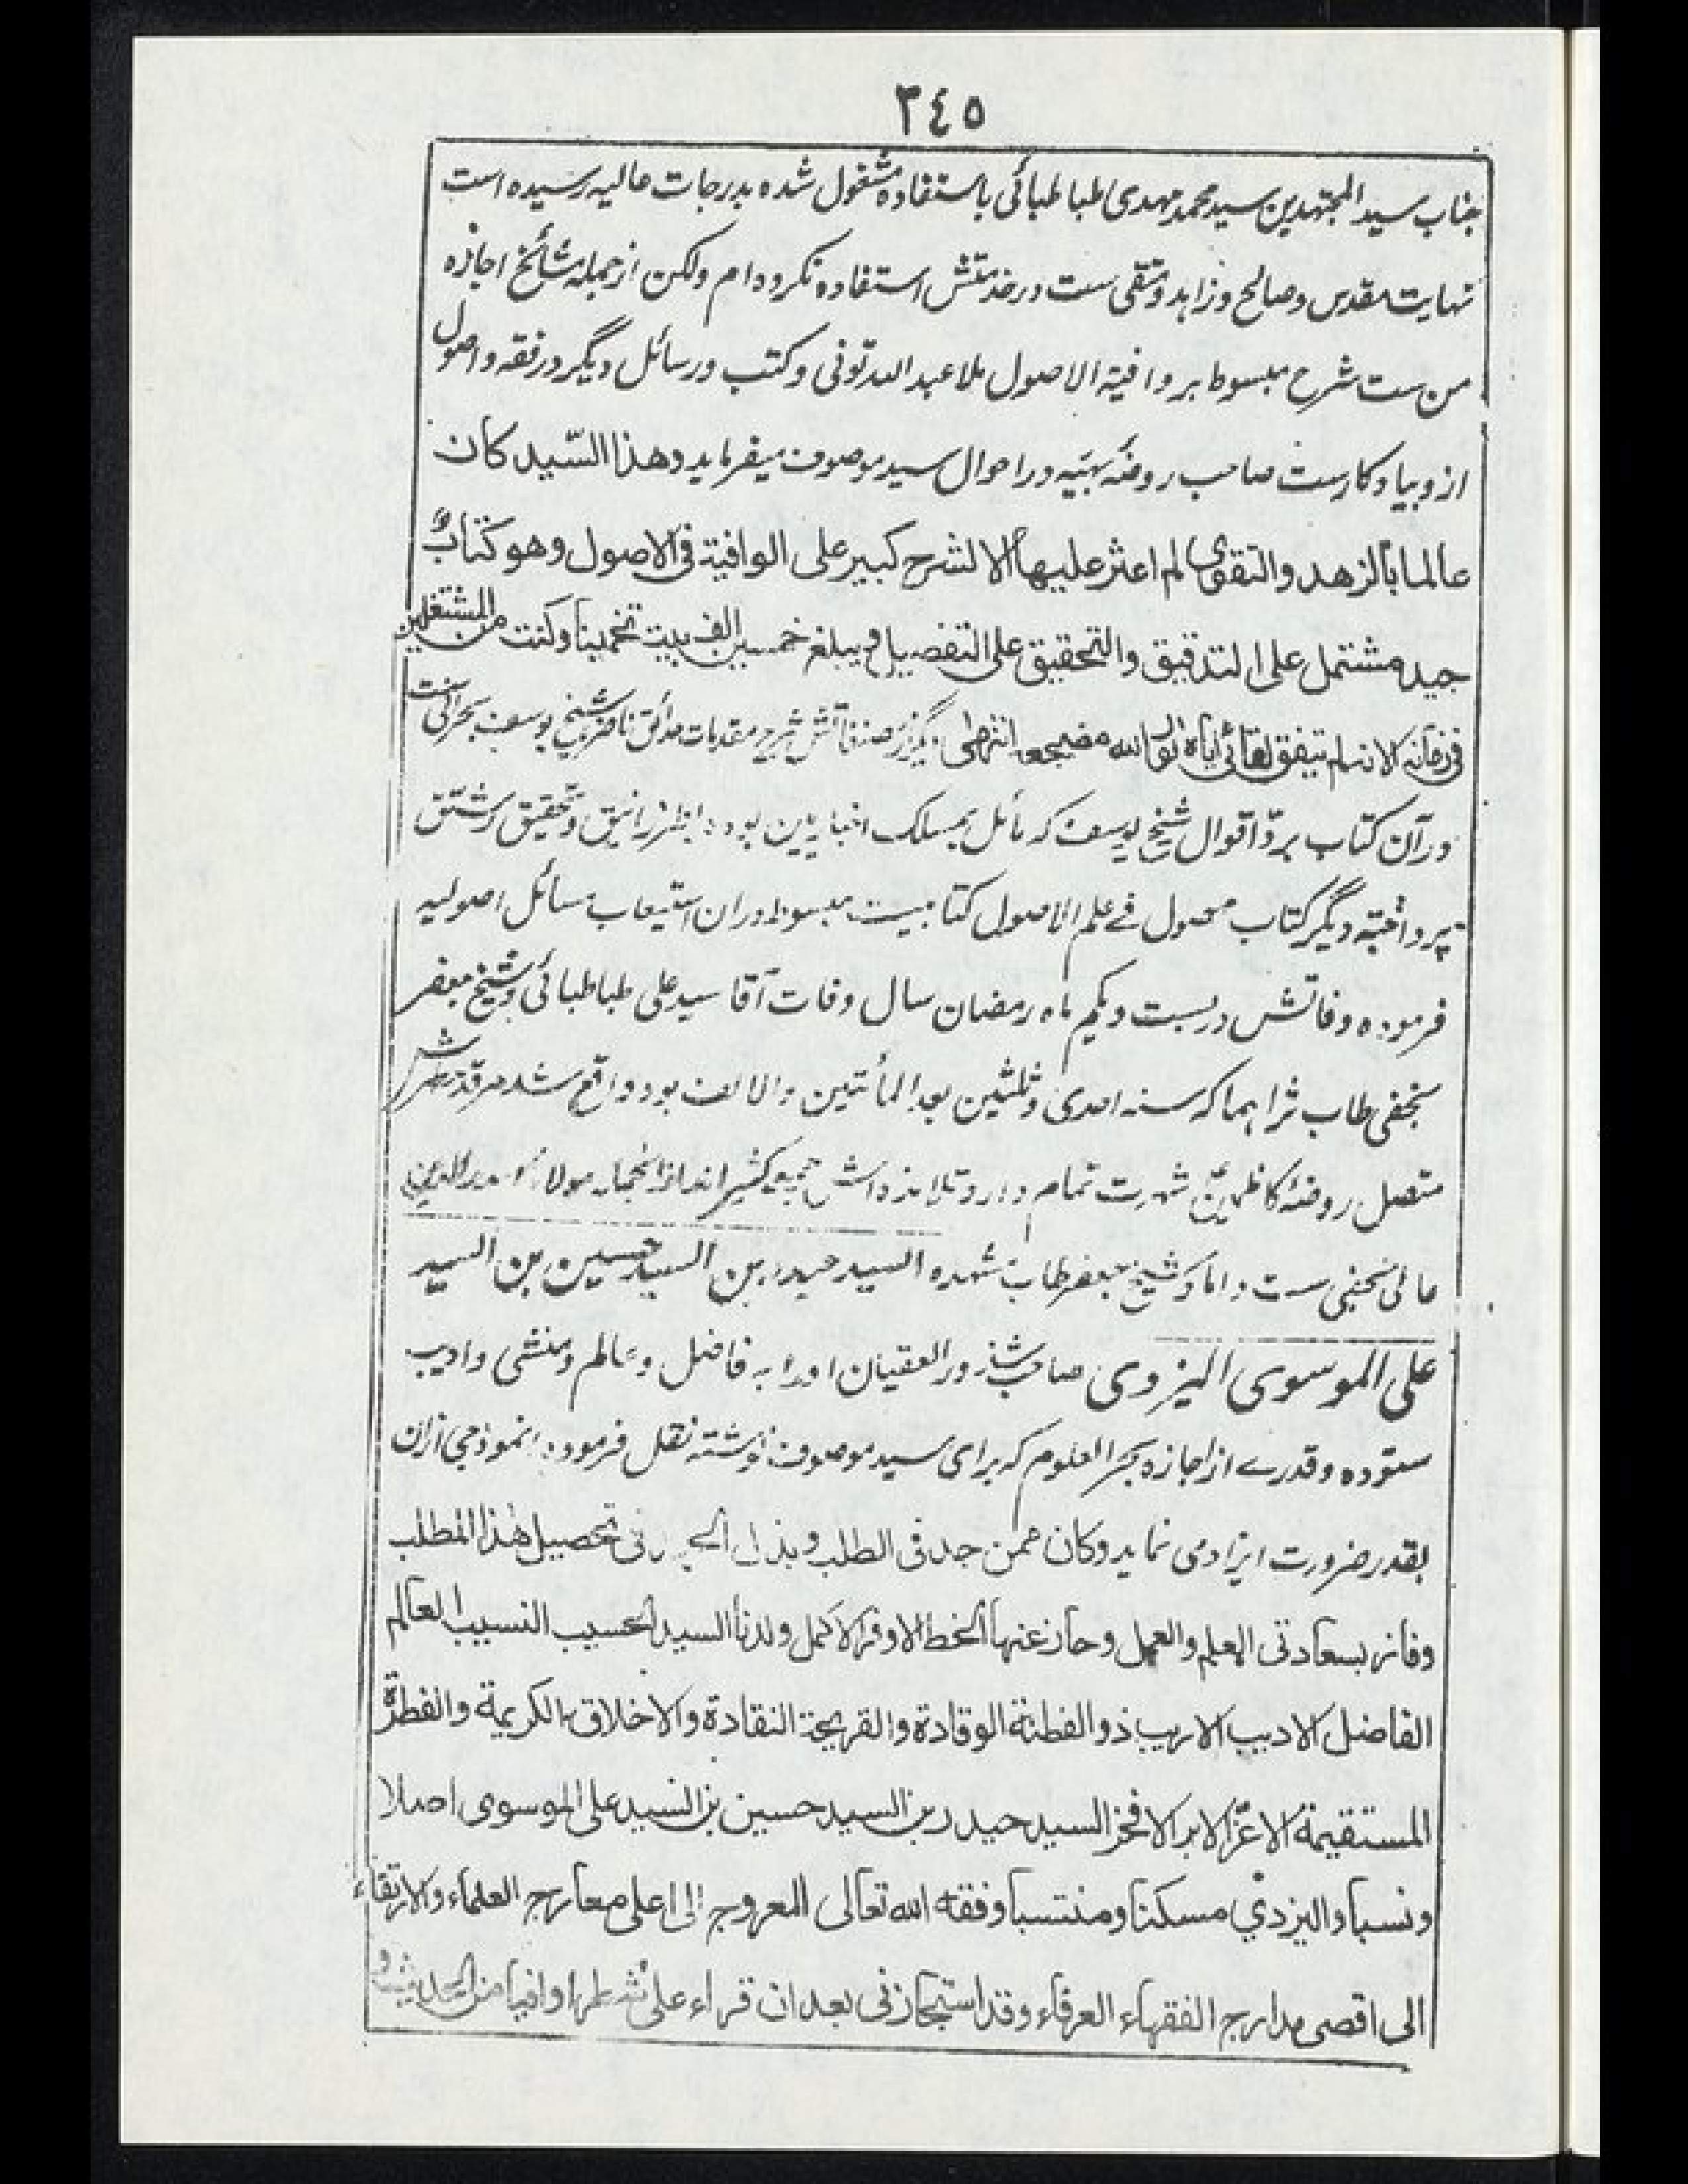 ٣٤٥
جناب سید المجتهدین سید محمد مهدی طباطبائی باستفاده مشغول شده بدرجات عالیه رسیده است
نهایت مقدس و صالح و زاهد و متقی ست در خدمتش استفاده نکرده ام ولکن از جمله مشائخ اجازه
من ست شرح مبسوط بر وافیة الاصول ملا عبد الله تونی و کتب و رسائل دیگر در فقه و اصول
ازو بیادگارست صاحب روضۂ بهیه در احوال سید موصوف میفرماید وهذا السّيد كان
عالما بالزهد والتقوى لم اعثر عليها الا لشرح كبير على الوافية فى الاصول وهو كتاب
جيد مشتمل على التدقيق والتحقيق على التفصيل ويبلغ خمسين الف بيت تخمينا وكنت من المشتغلين
فى زمانه الا انه لم يتفق لقائى اياه نور الله مضجعه انتهى دیگر از مصنفاتش شرح مقدمات حدائق ناضره شیخ یوسف بحرانی ست
در آن کتاب بردّ اقوال شیخ یوسف که مائل بمسلک اخباریین بود بطرز انیق و تحقیق رشیق
پرداخته دیگر کتاب محصول فے علم الاصول کتابیست مبسوط دران استیعاب مسائل اصولیه
فرموده وفاتش در بست و یکم ماه رمضان سال وفات آقا سید علی طباطبائی و شیخ جعفر
نجفی طاب ثراهما که سنه احدی و ثلثین بعد المأتین والالف بود واقع شد مرقدش
متصل روضۂ کاظمین شهرت تمام دارد و تلامذه اش جمعی کثیر اند ازانجمله مولانا اسد الله
نجفی ست داماد شیخ جعفر طاب مشهده السيد حيدر بن السيد حسين بن السيد
على الموسوى اليزدى صاحب شذور العقیان او را به فاضل و عالم و منشی و ادیب
ستوده و قدرے از اجازه بحر العلوم که برای سید موصوف نوشته نقل فرموده انموذجی ازان
بقدر ضرورت ایراد می نماید وكان ممن جد فى الطلب وبذل الجهد فى تحصيل هذا المطلب
وفاز بسعادتى العلم والعمل وحاز عنها الحظ الاوفر الاكمل ولدنا السيد الحسيب النسيب العالم
الفاضل الاديب الاريب ذو الفطنة الوقادة والقريحة النقادة والاخلاق الكريمة والفطرة
المستقيمة الاعز الابر الافخر السيد حيدر بن السيد حسين بن السيد على الموسوى اصلا
ونسبا واليزدي مسكنا ومنتسبا وفقه الله تعالى للعروج الى اعلى معارج العلماء والارتقاء
الى اقصى مدارج الفقهاء العرفاء وقد استجازنى بعد ان قراء على شطرا وافيا من الحديث و